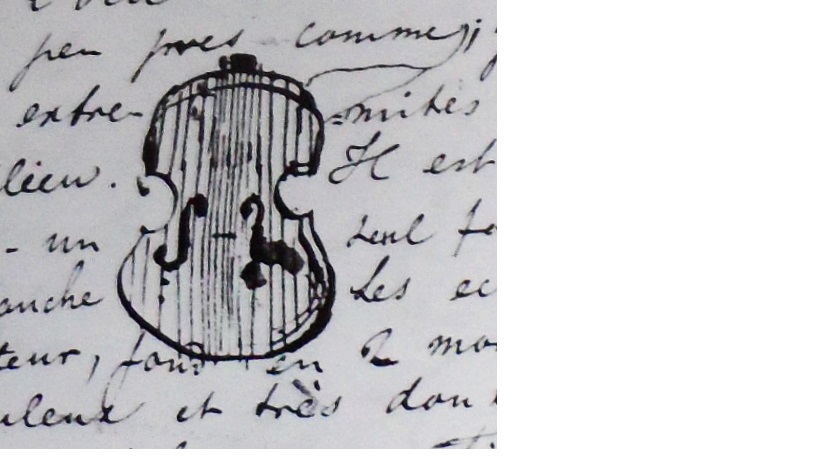 peu pres comme,
extre- mites
lieu. Il est
- un seul
anche Les ec
teur, fond en 2 mo
uleux et très dou